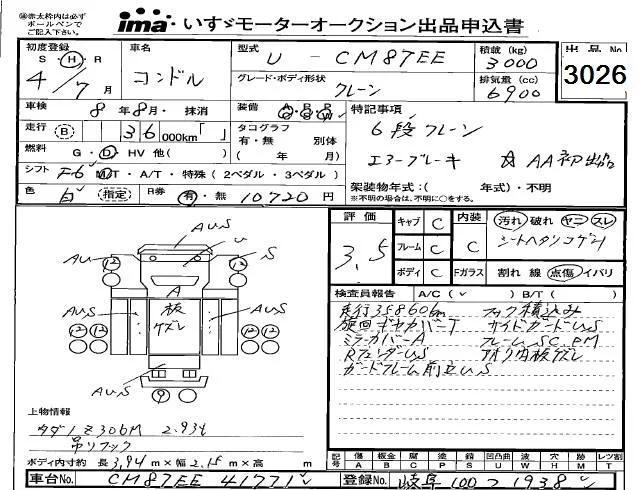 ima いすゞモーターオークション出品申込書
㊟赤太枠内は必ず
ボールペンで
ご記入下さい。
初度登録 車名 型式 U - CM87EE 積載 (kg) 3000 出品 No
S・H・R 4/7月 コンドル グレード・ボディ形状 クレーン 排気量 (cc) 6900 3026
車検 8年8月・抹消 装備 特記事項
走行 B 36,000km「 」 タコグラフ 有・無 別体 6段クレーン
燃料 G・D・HV 他( ) ( 年 月) エアーブレーキ ☆AAネP出品
シフト F6 M/T・A/T・特殊 (2ペダル・3ペダル) 架装物年式:( 年式)・不明
色 白 (指定) R券 有・無 10720円 ※不明の場合は、不明に○をする。
評価 3.5 キャブ C 内装 C 汚れ 破れ ヤニ スレ
フレーム C シートヘタリコゲ
ボディ C Fガラス 割れ 線 点傷 イバリ
検査員報告 A/C( ✓ ) B/T( )
走行35860km フック積込み
旋回ギヤカバーT サイドガードUS
ミラーカバーA フレームSC.PM
RフェンダーUS アオリ内板ズレ
ガードフレーム前立US
AUS
AU U S
12 12
A
板
ズレ
12 12 12 12
AUS S AUS
9
AUS
上物情報
タダノZ306M 2.93t
吊りフック
ボディ内寸約 長 3.94 m×幅 2.15 m×高 m
記号 傷 A 板金 B 腐 C 塗 P 錆 S 凹凸曲 U 波 W 穴 H 跡 M レツ割 T
車台No. CM87EE 41771 登録No. 岐阜100つ1938